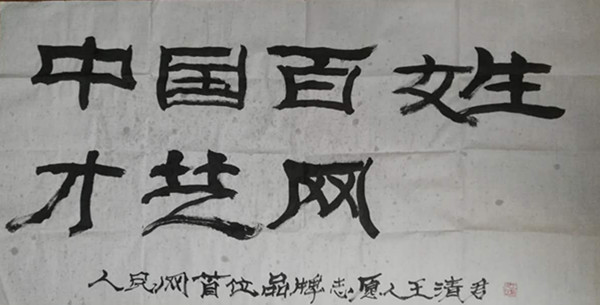 中国百姓
才艺网
人民网首位品牌志愿人王清君